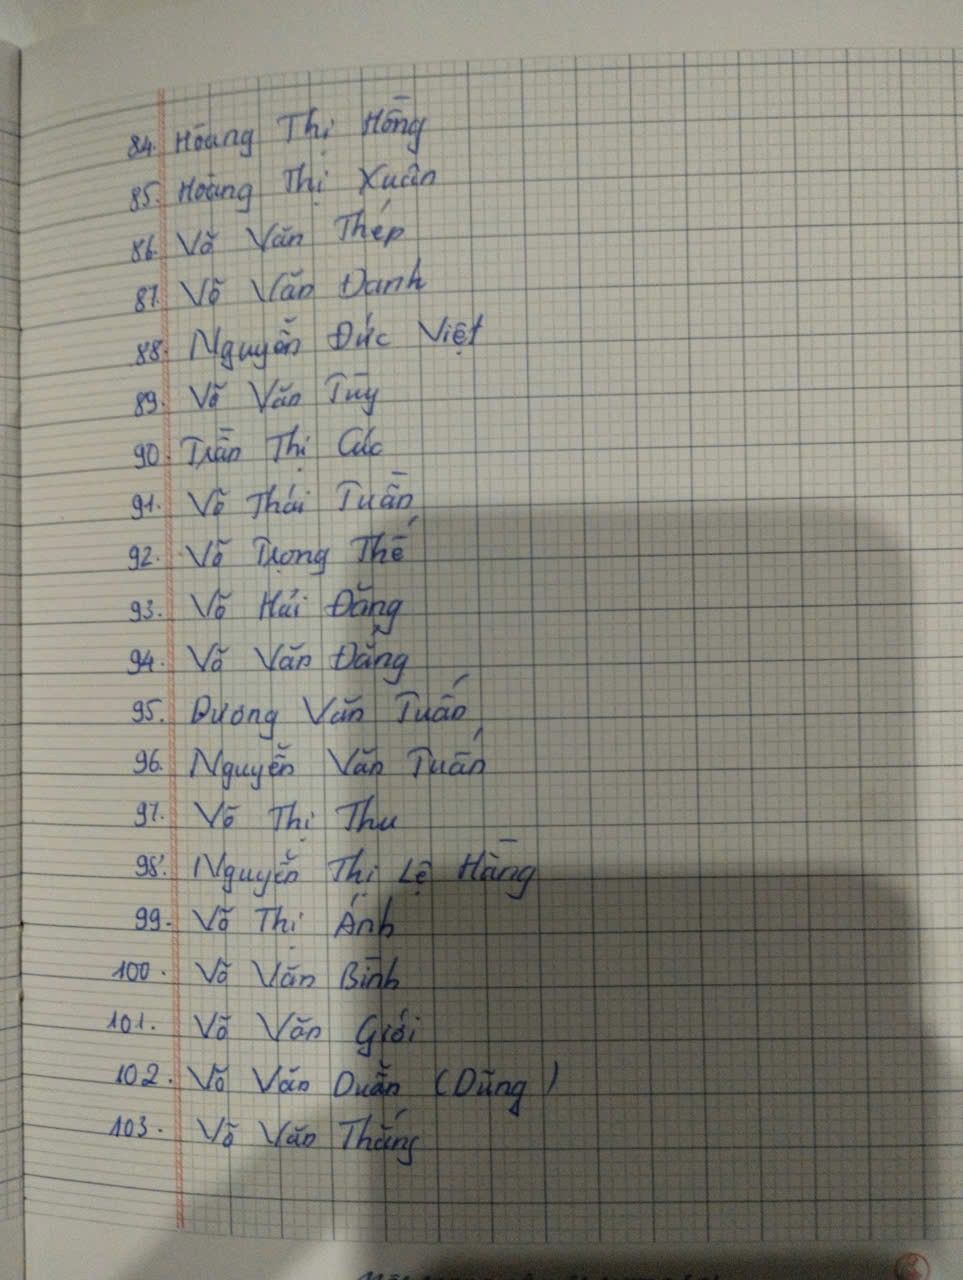 84. Hoàng Thị Hồng
85. Hoàng Thị Xuân
86. Võ Văn Thép
87. Võ Văn Danh
88. Nguyễn Đức Việt
89. Võ Văn Tùy
90. Trần Thị Cúc
91. Võ Thái Tuần
92. Võ Trọng Thế
93. Võ Hải Đăng
94. Võ Văn Đẳng
95. Dương Văn Tuấn
96. Nguyễn Văn Tuấn
97. Võ Thị Thu
98. Nguyễn Thị Lệ Hằng
99. Võ Thị Ánh
100. Võ Văn Bình
101. Võ Văn Giới
102. Võ Văn Duẩn (Dũng)
103. Võ Văn Thắng